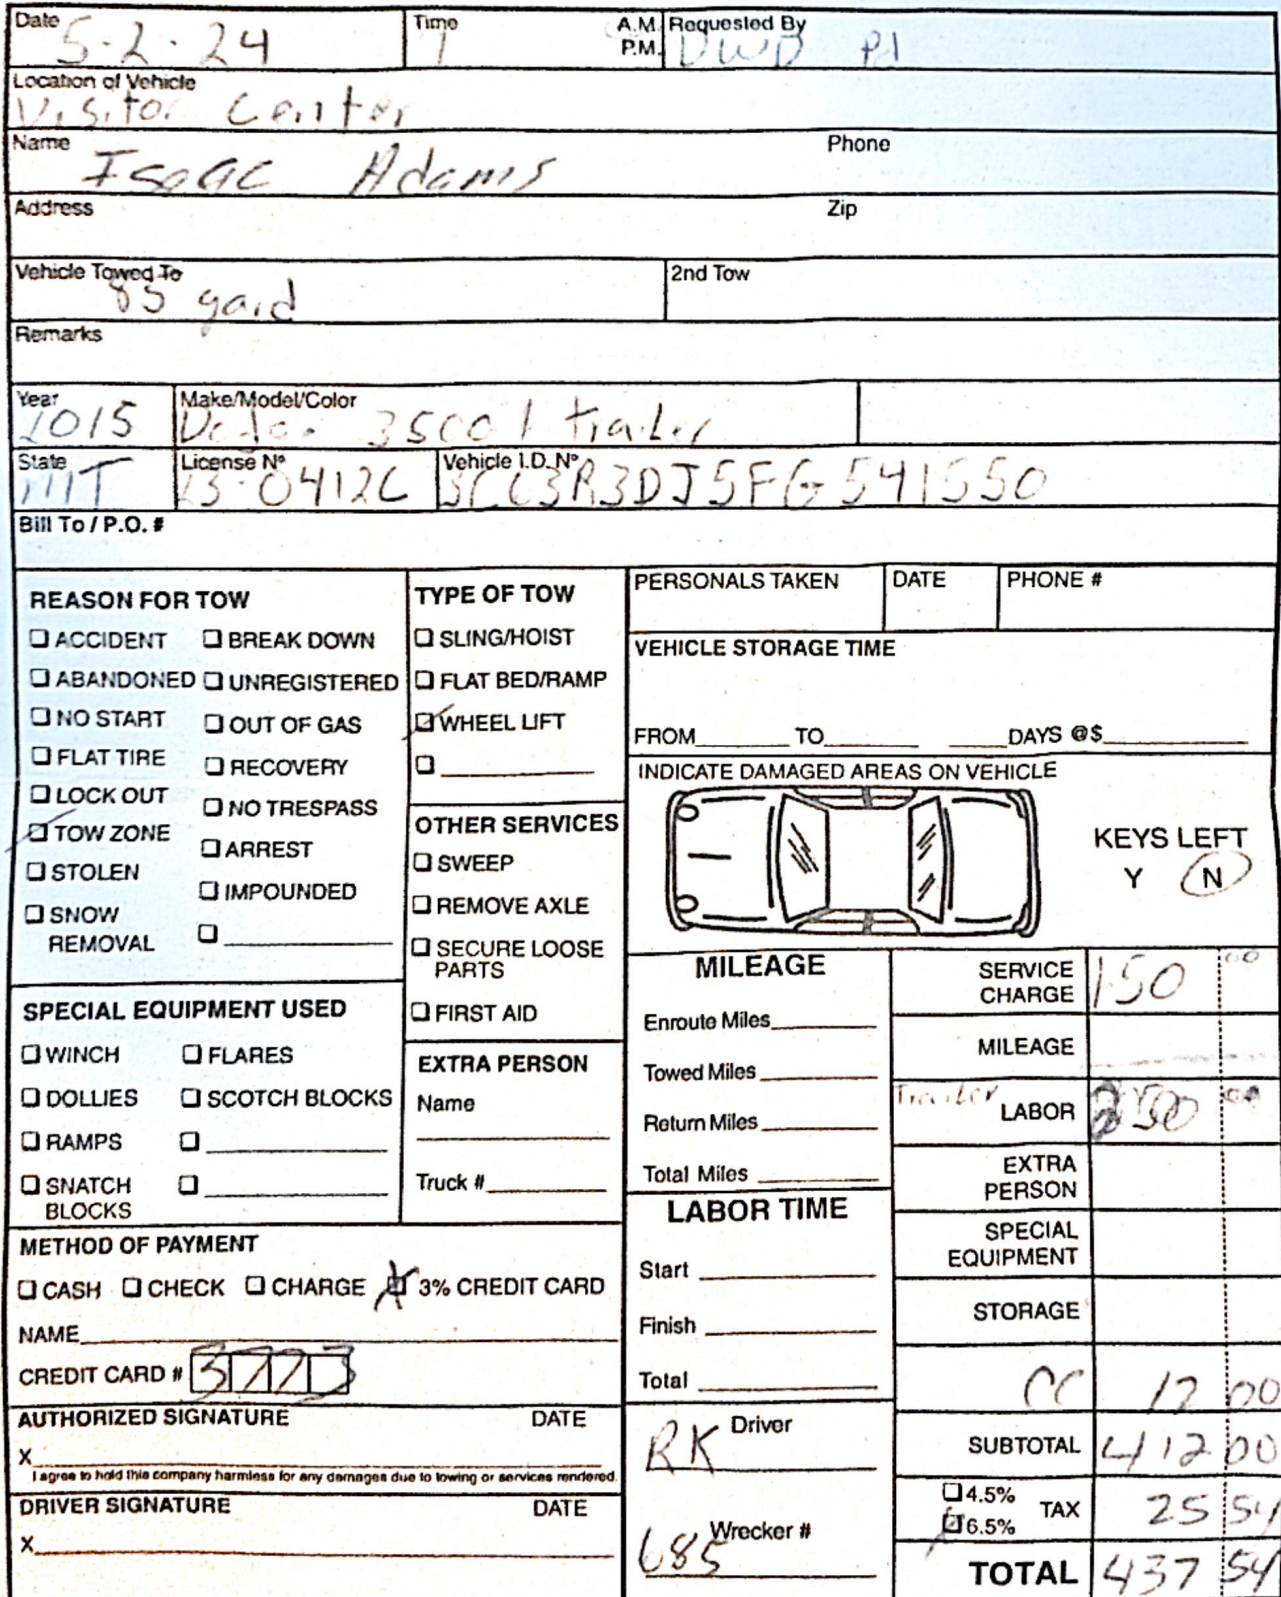 Date 5-2-24 Time A.M. P.M. Requested By Pd
Location of Vehicle
Visitor Center
Name Isaac Adams Phone
Address Zip
Vehicle Towed To 85 yard 2nd Tow
Remarks
Year 2015 Make/Model/Color Dodge 3500 / trailer
State MT License Nº 13-0412C Vehicle I.D. Nº 3CC3R3DJ5FG541550
Bill To / P.O. #
REASON FOR TOW
☐ ACCIDENT ☐ BREAK DOWN
☐ ABANDONED ☐ UNREGISTERED
☐ NO START ☐ OUT OF GAS
☐ FLAT TIRE ☐ RECOVERY
☐ LOCK OUT ☐ NO TRESPASS
☑ TOW ZONE ☐ ARREST
☐ STOLEN ☐ IMPOUNDED
☐ SNOW REMOVAL ☐
TYPE OF TOW
☐ SLING/HOIST
☐ FLAT BED/RAMP
☑ WHEEL LIFT
☐
OTHER SERVICES
☐ SWEEP
☐ REMOVE AXLE
☐ SECURE LOOSE
PARTS
☐ FIRST AID
PERSONALS TAKEN DATE PHONE #
VEHICLE STORAGE TIME
FROM TO DAYS @$
INDICATE DAMAGED AREAS ON VEHICLE
KEYS LEFT
Y N
SPECIAL EQUIPMENT USED
☐ WINCH ☐ FLARES
☐ DOLLIES ☐ SCOTCH BLOCKS
☐ RAMPS ☐
☐ SNATCH ☐
BLOCKS
EXTRA PERSON
Name
Truck #
MILEAGE
Enroute Miles
Towed Miles
Return Miles
Total Miles
LABOR TIME
Start
Finish
Total
RK Driver
685 Wrecker #
SERVICE CHARGE 150 00
MILEAGE
Trailer LABOR 250 00
EXTRA PERSON
SPECIAL EQUIPMENT
STORAGE
CC 12 00
SUBTOTAL 412 00
☐ 4.5%
☑ 6.5% TAX 25 54
TOTAL 437 54
METHOD OF PAYMENT
☐ CASH ☐ CHECK ☐ CHARGE ☒ 3% CREDIT CARD
NAME
CREDIT CARD # 3773
AUTHORIZED SIGNATURE DATE
X
I agree to hold this company harmless for any damages due to towing or services rendered.
DRIVER SIGNATURE DATE
X